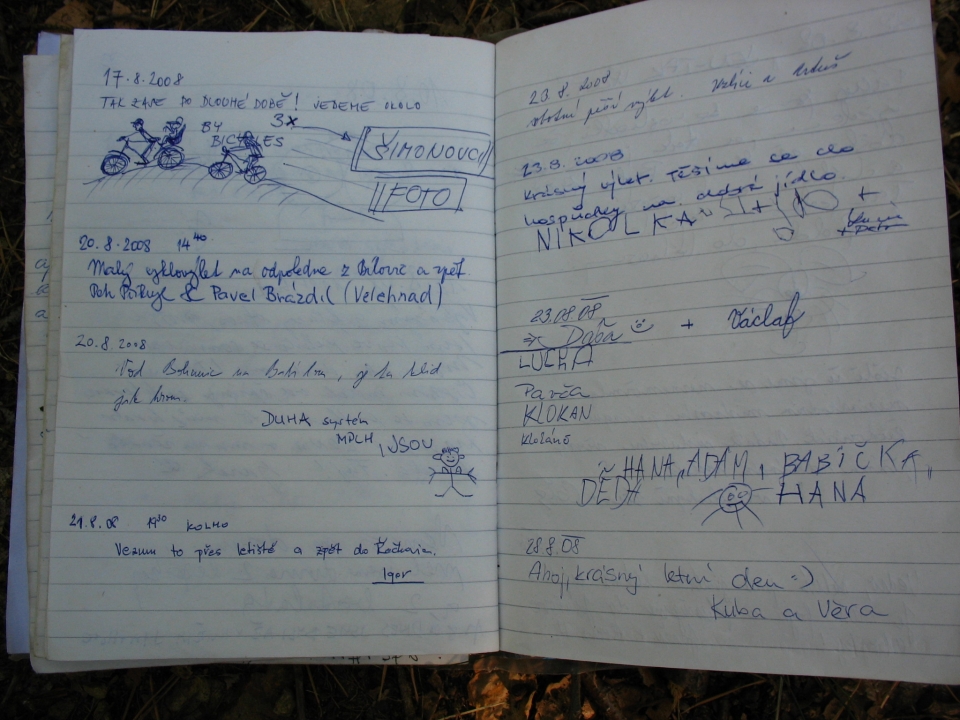 17.8.2008
TAK ZASE PO DLOUHÉ DOBĚ! JEDEME OKOLO
BY
BICYCLES
3x
ŠIMONOVCI
FOTO
20.8.2008 14 40
Malý cyklovýlet na odpoledne z Bílovic a zpět.
Petr & Pavel Brázdil (Velehrad)
20.8.2008
Pod na Babí lom, je tu klid
jak
DUHA systém
MPCH, JSOU
21.8.08 19 30 KOLMO
Vezmu to přes letiště a zpět do
Igor
20.8.2008
pěší výlet.
23.8.2008
krásný výlet. Těšíme se do
hospůdky na dobré jídlo.
NIKOLKA + +
23.08.08
Dája + Václav
LUCKA
Parča
KLOKAN
HANA, ADAM, BABIČKA,
DĚDA HANA
28.8.08
Ahoj, krásný letní den :-)
Kuba a Věra